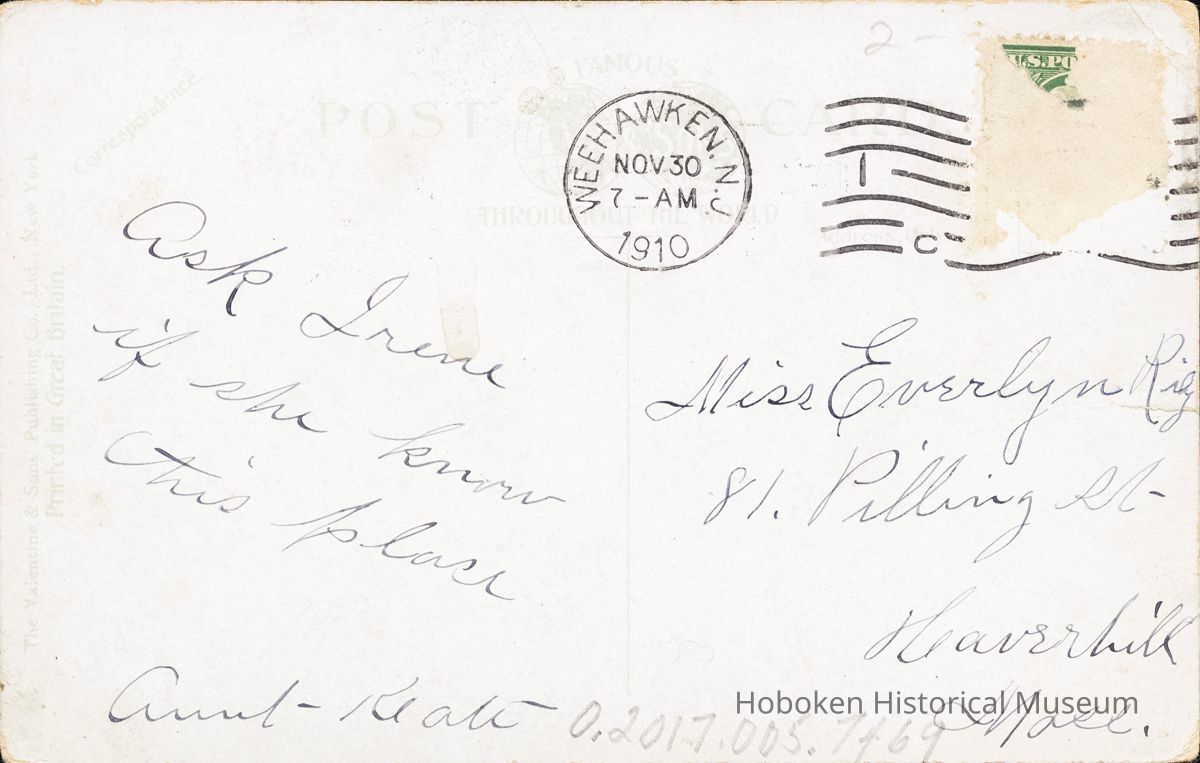 2-
U.S.PO
Correspondence
FAMOUS
POST CARD
THROUGHOUT THE WORLD
WEEHAWKEN. N.J.
NOV 30
7-AM
1910
1
C
Ask Irene
if she know
this place
Aunt Keatt
Miss Everlyn Rig
81. Pilling St-
Haverhill
Mass.
The Valentine & Sons Publishing Co., Ltd. New York
Printed in Great Britain.
Hoboken Historical Museum
0.2017.005.7469